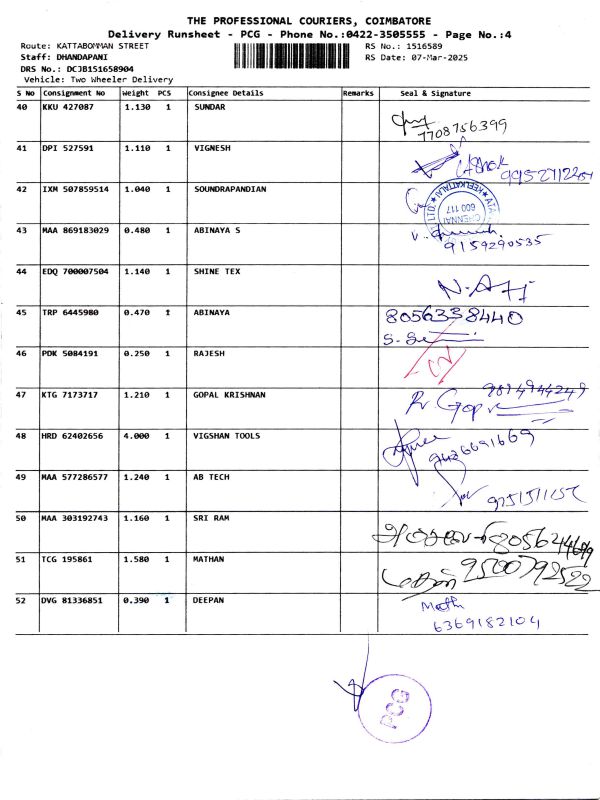 THE PROFESSIONAL COURIERS, COIMBATORE
Delivery Runsheet - PCG - Phone No.:0422-3505555 - Page No.:4
Route: KATTABOMMAN STREET RS No.: 1516589
Staff: DHANDAPANI RS Date: 07-Mar-2025
DRS No.: DCJB151658904
Vehicle: Two Wheeler Delivery
S No Consignment No Weight PCS Consignee Details Remarks Seal & Signature
40 KKU 427087 1.130 1 SUNDAR
7708756399
41 DPI 527591 1.110 1 VIGNESH
Ashok
42 IXM 507859514 1.040 1 SOUNDRAPANDIAN
CHENNAI
600 117
43 MAA 869183029 0.480 1 ABINAYA S
9159290535
44 EDQ 700007504 1.140 1 SHINE TEX
N.
45 TRP 6445980 0.470 1 ABINAYA
8056338440
46 PDK 5084191 0.250 1 RAJESH
47 KTG 7173717 1.210 1 GOPAL KRISHNAN
9894944249
48 HRD 62402656 4.000 1 VIGSHAN TOOLS
49 MAA 577286577 1.240 1 AB TECH
50 MAA 303192743 1.160 1 SRI RAM
51 TCG 195861 1.580 1 MATHAN
9500792522
52 DVG 81336851 0.390 1 DEEPAN
6369182104
PCG